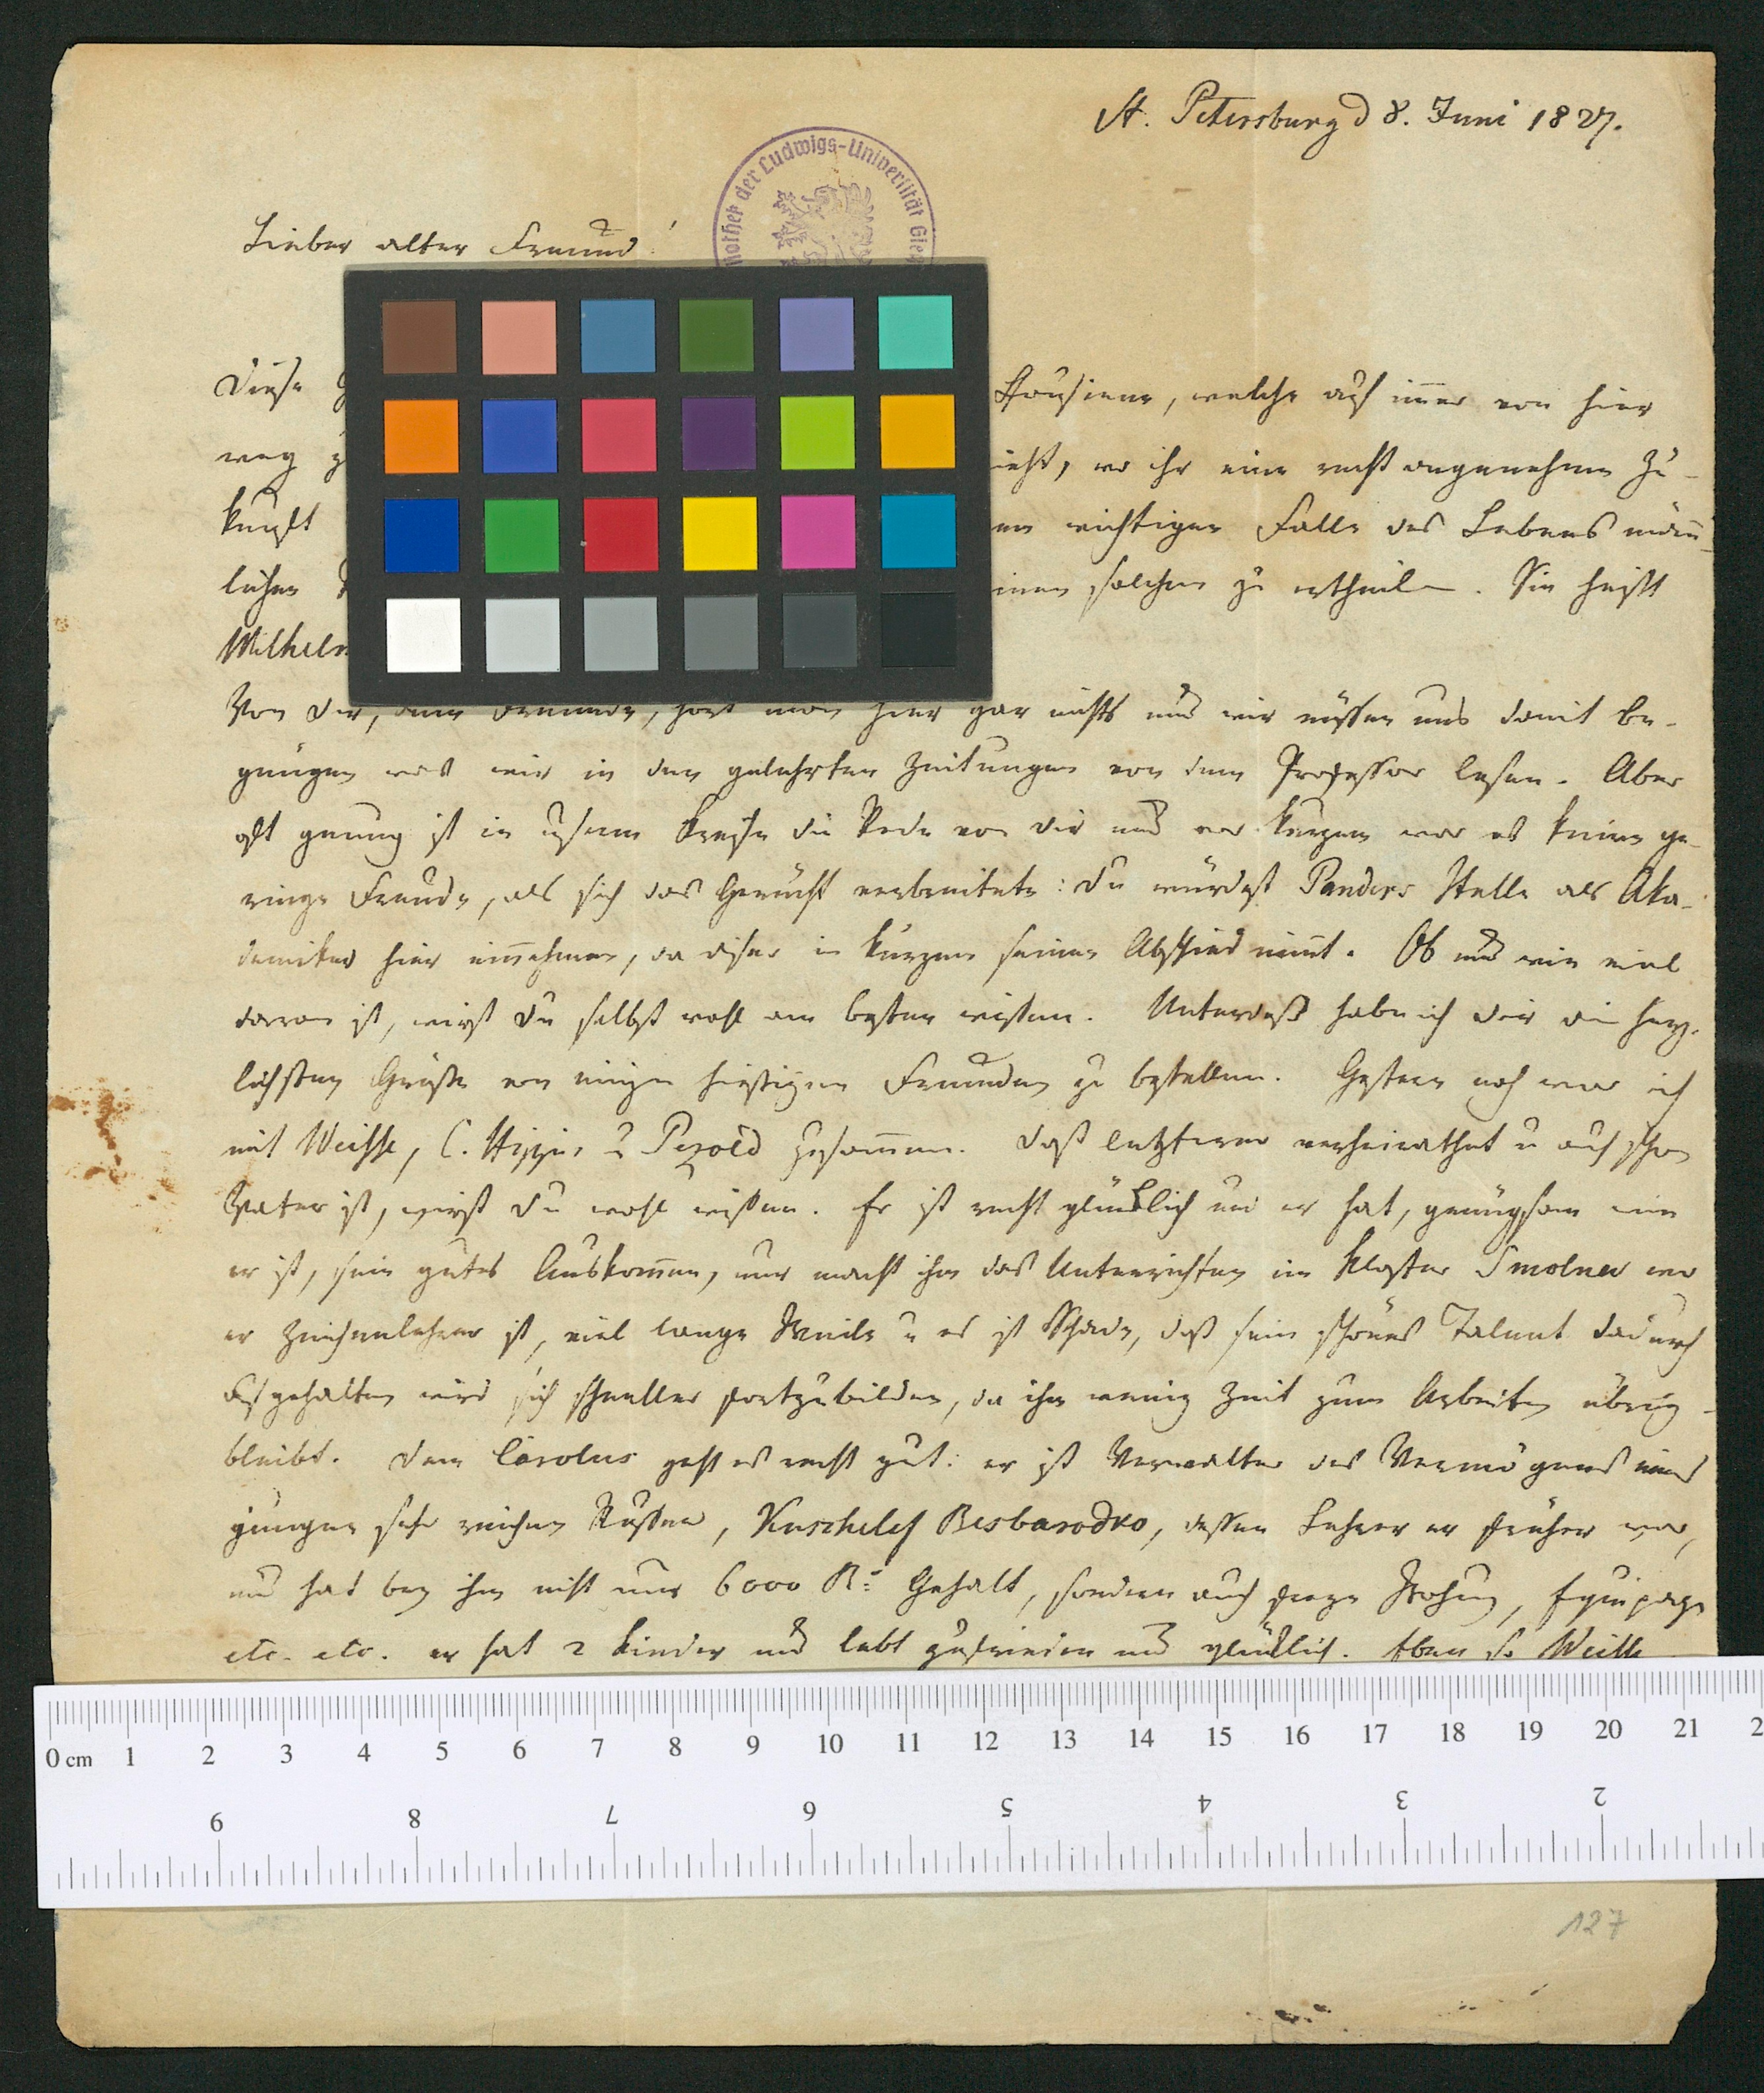 St. Petersburg d 8. Juni 1827.
Lieber alter Freund!
othek der Ludwigs-Universität Gieß
Diese Cousine, welche auf imer von hier
weg z ieht, wo ihr eine recht angenehme Zu-
kunft en wichtigen Falle des Lebens männ-
lichen einen solchen zu ertheilen. Sie heißt
Wilhelm
Von Dir, dem Freunde, hört man hier gar nichts und wir müssen uns damit be-
gnügen was wir in den gelehrten Zeitungen von dem Professor lesen. Aber
oft genug ist in unserm Kreise die Rede von Dir und vor kurzem war es keine ge-
ringe Freude, als sich das Gerücht verbreitete: Du würdest Panders Stelle als Aka-
demiker hier einnehmen, da dieser in kurzem seinen Abschied nimt. Ob und wie viel
daran ist, wirst Du selbst wohl am besten wissen. Unterdeß habe ich Dir die herz-
lichsten Grüße von einigen hiesigen Freunden zu bestellen. Gestern noch war ich
mit Weisse, C. Hippius u Pezold zusamen. Daß letzterer verheirathet u auch schon
Vater ist, wirst Du wohl wissen. Er ist recht glücklich und er hat, genügsam wie
er ist, sein gutes Auskomen, nur macht ihm das Unterrichten im Kloster Smolna wo
er Zeichenlehrer ist, viel lange Weile u es ist Schade, daß sein schönes Talent dadurch
aufgehalten wird sich schneller fortzubilden, da ihm wenig Zeit zum Arbeiten übrig
bleibt. Dem Carolus geht es recht gut: er ist Verwalter des Vermögens eines
jungen sehr reichen Russen, Kuschelef Besbarodko, dessen Lehrer er früher war,
und hat bey ihm nicht nur 6000 R. Gehalt, sondern auch freye Wohnung, Equipage
etc. etc. er hat 2 Kinder und lebt zufrieden und glücklich. Eben so Weisse
0 cm 1 2 3 4 5 6 7 8 9 10 11 12 13 14 15 16 17 18 19 20 21 2
9 8 7 6 5 4 3 2
127